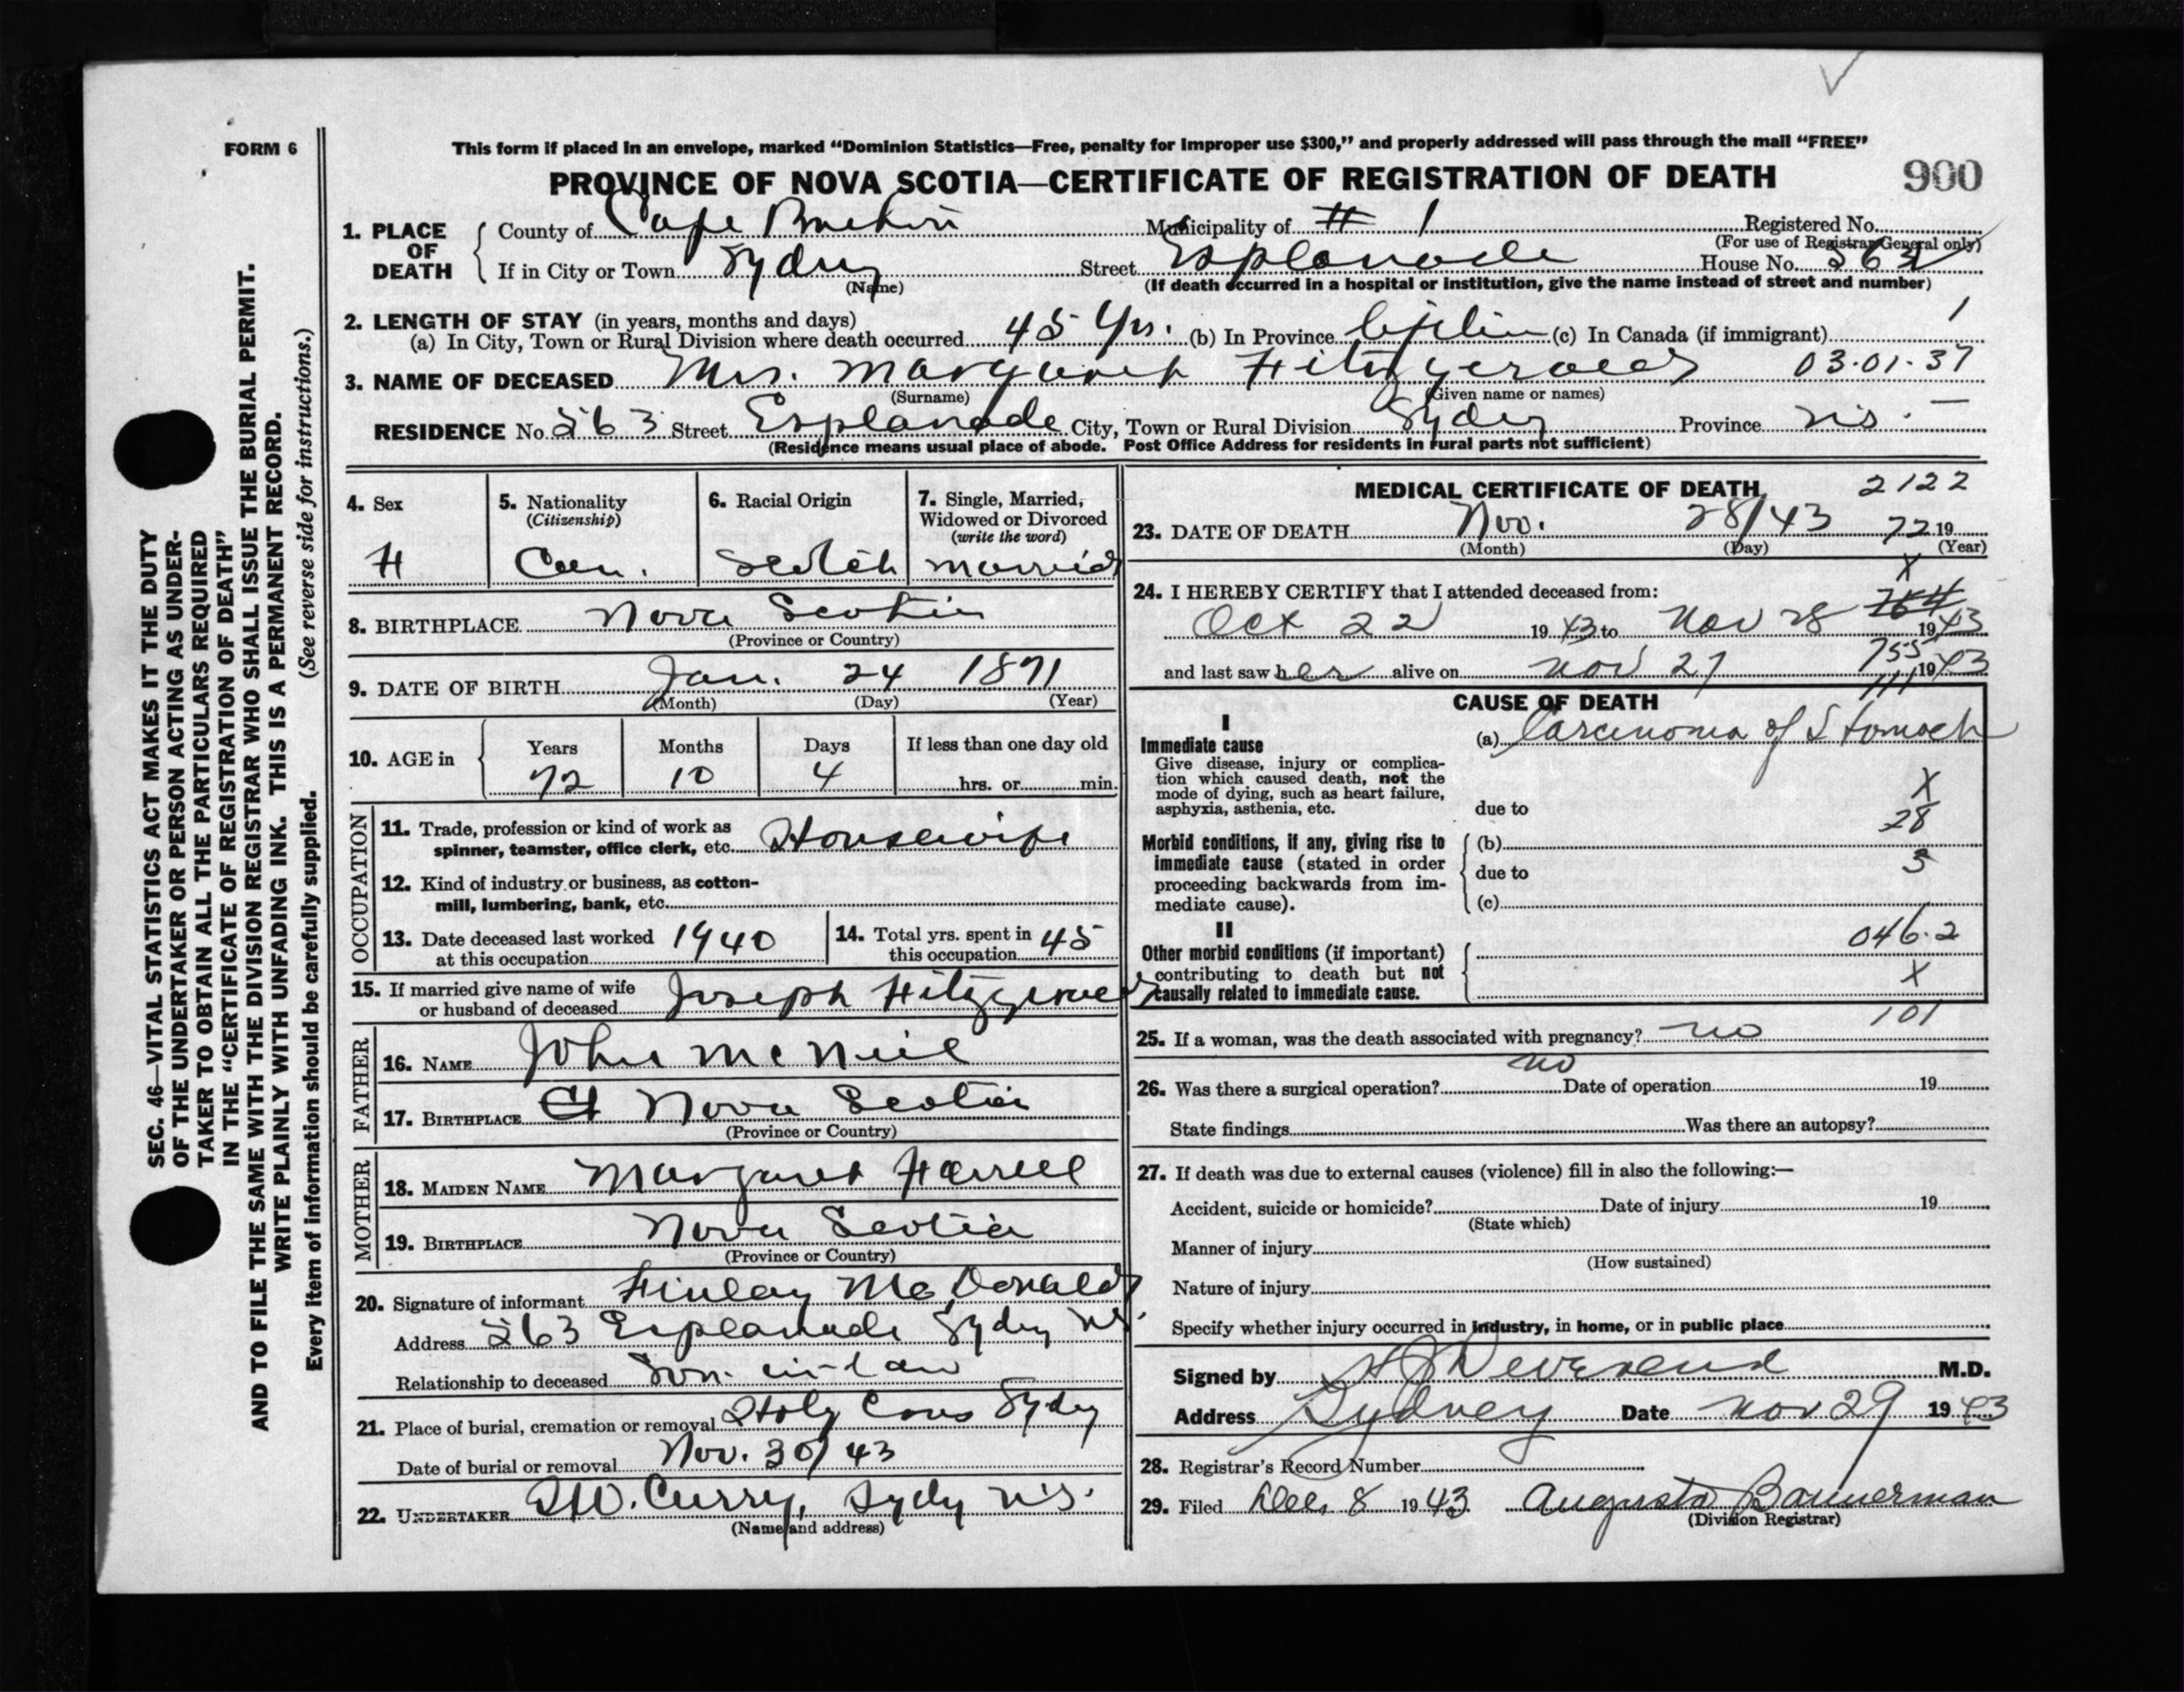 FORM 6
This form if placed in an envelope, marked “Dominion Statistics—Free, penalty for improper use $300,” and properly addressed will pass through the mail “FREE”
PROVINCE OF NOVA SCOTIA—CERTIFICATE OF REGISTRATION OF DEATH 900
1. PLACE OF DEATH
County of Cape Breton Municipality of # 1 Registered No.
(For use of Registrar General only)
If in City or Town Sydney Street Esplanade House No. 263
(Name) (If death occurred in a hospital or institution, give the name instead of street and number)
2. LENGTH OF STAY (in years, months and days) 1
(a) In City, Town or Rural Division where death occurred 45 Yrs. (b) In Province Lifetime (c) In Canada (if immigrant)
3. NAME OF DECEASED Mrs. Margaret Fitzgerald 03.01.37
(Surname) (Given name or names)
RESIDENCE No. 263 Street Esplanade City, Town or Rural Division Sydney Province N.S. —
(Residence means usual place of abode. Post Office Address for residents in rural parts not sufficient)
4. Sex
F
5. Nationality
(Citizenship)
Can.
6. Racial Origin
Scotch
7. Single, Married,
Widowed or Divorced
(write the word)
Married
8. BIRTHPLACE Nova Scotia
(Province or Country)
9. DATE OF BIRTH Jan. 24 1871
(Month) (Day) (Year)
10. AGE in
Years Months Days If less than one day old
72 10 4 hrs. or min.
OCCUPATION
11. Trade, profession or kind of work as
spinner, teamster, office clerk, etc. Housewife
12. Kind of industry or business, as cotton-
mill, lumbering, bank, etc.
13. Date deceased last worked
at this occupation 1940
14. Total yrs. spent in
this occupation 45
15. If married give name of wife
or husband of deceased Joseph Fitzgerald
FATHER
16. NAME John McNeil
17. BIRTHPLACE Nova Scotia
(Province or Country)
MOTHER
18. MAIDEN NAME Margaret Farrell
19. BIRTHPLACE Nova Scotia
(Province or Country)
20. Signature of informant Finlay McDonald
Address 263 Esplanade Sydney N.S.
Relationship to deceased Son-in-law
21. Place of burial, cremation or removal Holy Cross Sydney
Date of burial or removal Nov. 30/43
22. UNDERTAKER Curry, Sydney N.S.
(Name and address)
MEDICAL CERTIFICATE OF DEATH 2122
23. DATE OF DEATH Nov. 28/43 72 19
(Month) (Day) (Year)
X
24. I HEREBY CERTIFY that I attended deceased from: 764
Oct 22 1943 to Nov 28 1943
755
and last saw her alive on Nov 27 1943
111
CAUSE OF DEATH
I
Immediate cause
Give disease, injury or complica-
tion which caused death, not the
mode of dying, such as heart failure,
asphyxia, asthenia, etc.
(a) Carcinoma of Stomach
X
due to
28
Morbid conditions, if any, giving rise to
immediate cause (stated in order
proceeding backwards from im-
mediate cause).
(b)
3
due to
(c)
II
Other morbid conditions (if important)
contributing to death but not
causally related to immediate cause.
046.2
X
101
25. If a woman, was the death associated with pregnancy? no
26. Was there a surgical operation? no Date of operation 19
State findings Was there an autopsy?
27. If death was due to external causes (violence) fill in also the following:—
Accident, suicide or homicide? Date of injury 19
(State which)
Manner of injury
(How sustained)
Nature of injury
Specify whether injury occurred in industry, in home, or in public place
Signed by M.D.
Address Sydney Date Nov 29 1943
28. Registrar's Record Number
29. Filed Dec. 8 1943 Augusta Bannerman
(Division Registrar)
SEC. 46—VITAL STATISTICS ACT MAKES IT THE DUTY
OF THE UNDERTAKER OR PERSON ACTING AS UNDER-
TAKER TO OBTAIN ALL THE PARTICULARS REQUIRED
IN THE “CERTIFICATE OF REGISTRATION OF DEATH”
AND TO FILE THE SAME WITH THE DIVISION REGISTRAR WHO SHALL ISSUE THE BURIAL PERMIT.
WRITE PLAINLY WITH UNFADING INK. THIS IS A PERMANENT RECORD.
Every item of information should be carefully supplied. (See reverse side for instructions.)